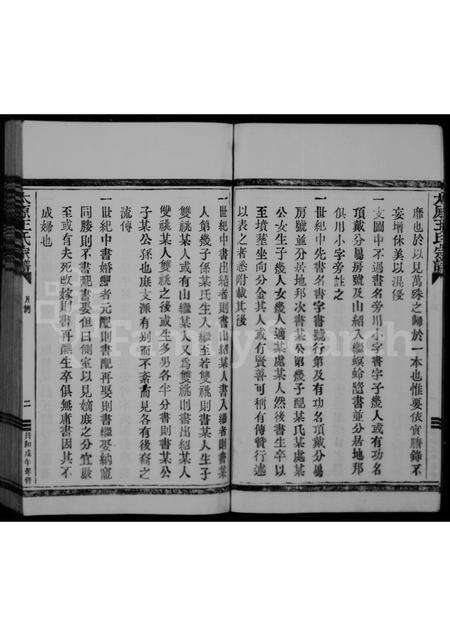 太原王氏宗譜
牒也於以見萬殊之歸於一本也惟要依實謄錄不
妄增休美以混侵
一支圖中不過書名旁用小字書字子幾人或有功名
頂戴分屬房號及由紹入繼螟蛉臨書並分居地邦
俱用小字旁註之
一世紀中先書名書字書號行第及有功名頂戴分屬
房分或分居地邦次書某公第幾子配某氏某處某
公女生子幾人女幾人適某處某人然後書生卒以
至墳塟坐向分金其人或有賢善可稱有傳贊行述
以表之者悉附載其後
一世紀中書出紹者則書出紹某人書入繼者則書某
人第幾子係某氏生入繼至若雙祧則書某人生子
雙祧某人或有由繼某人又爲雙祧則書出紹某人
雙祧某人雙祧之後或生多男各半分書則書某公
子某公孫也庶支派有別而不紊而見各有後裔之
流傳
一世紀中書婚娶者元配則書配再娶則書繼娶納寵
同勝則不書配書娶但曰側室以見嫡庶之分宜嚴
至或有夫死改嫁則書再醮生卒俱無庸書因其不
成婦也
太原王氏宗譜
凡例
二
共和戊午年修